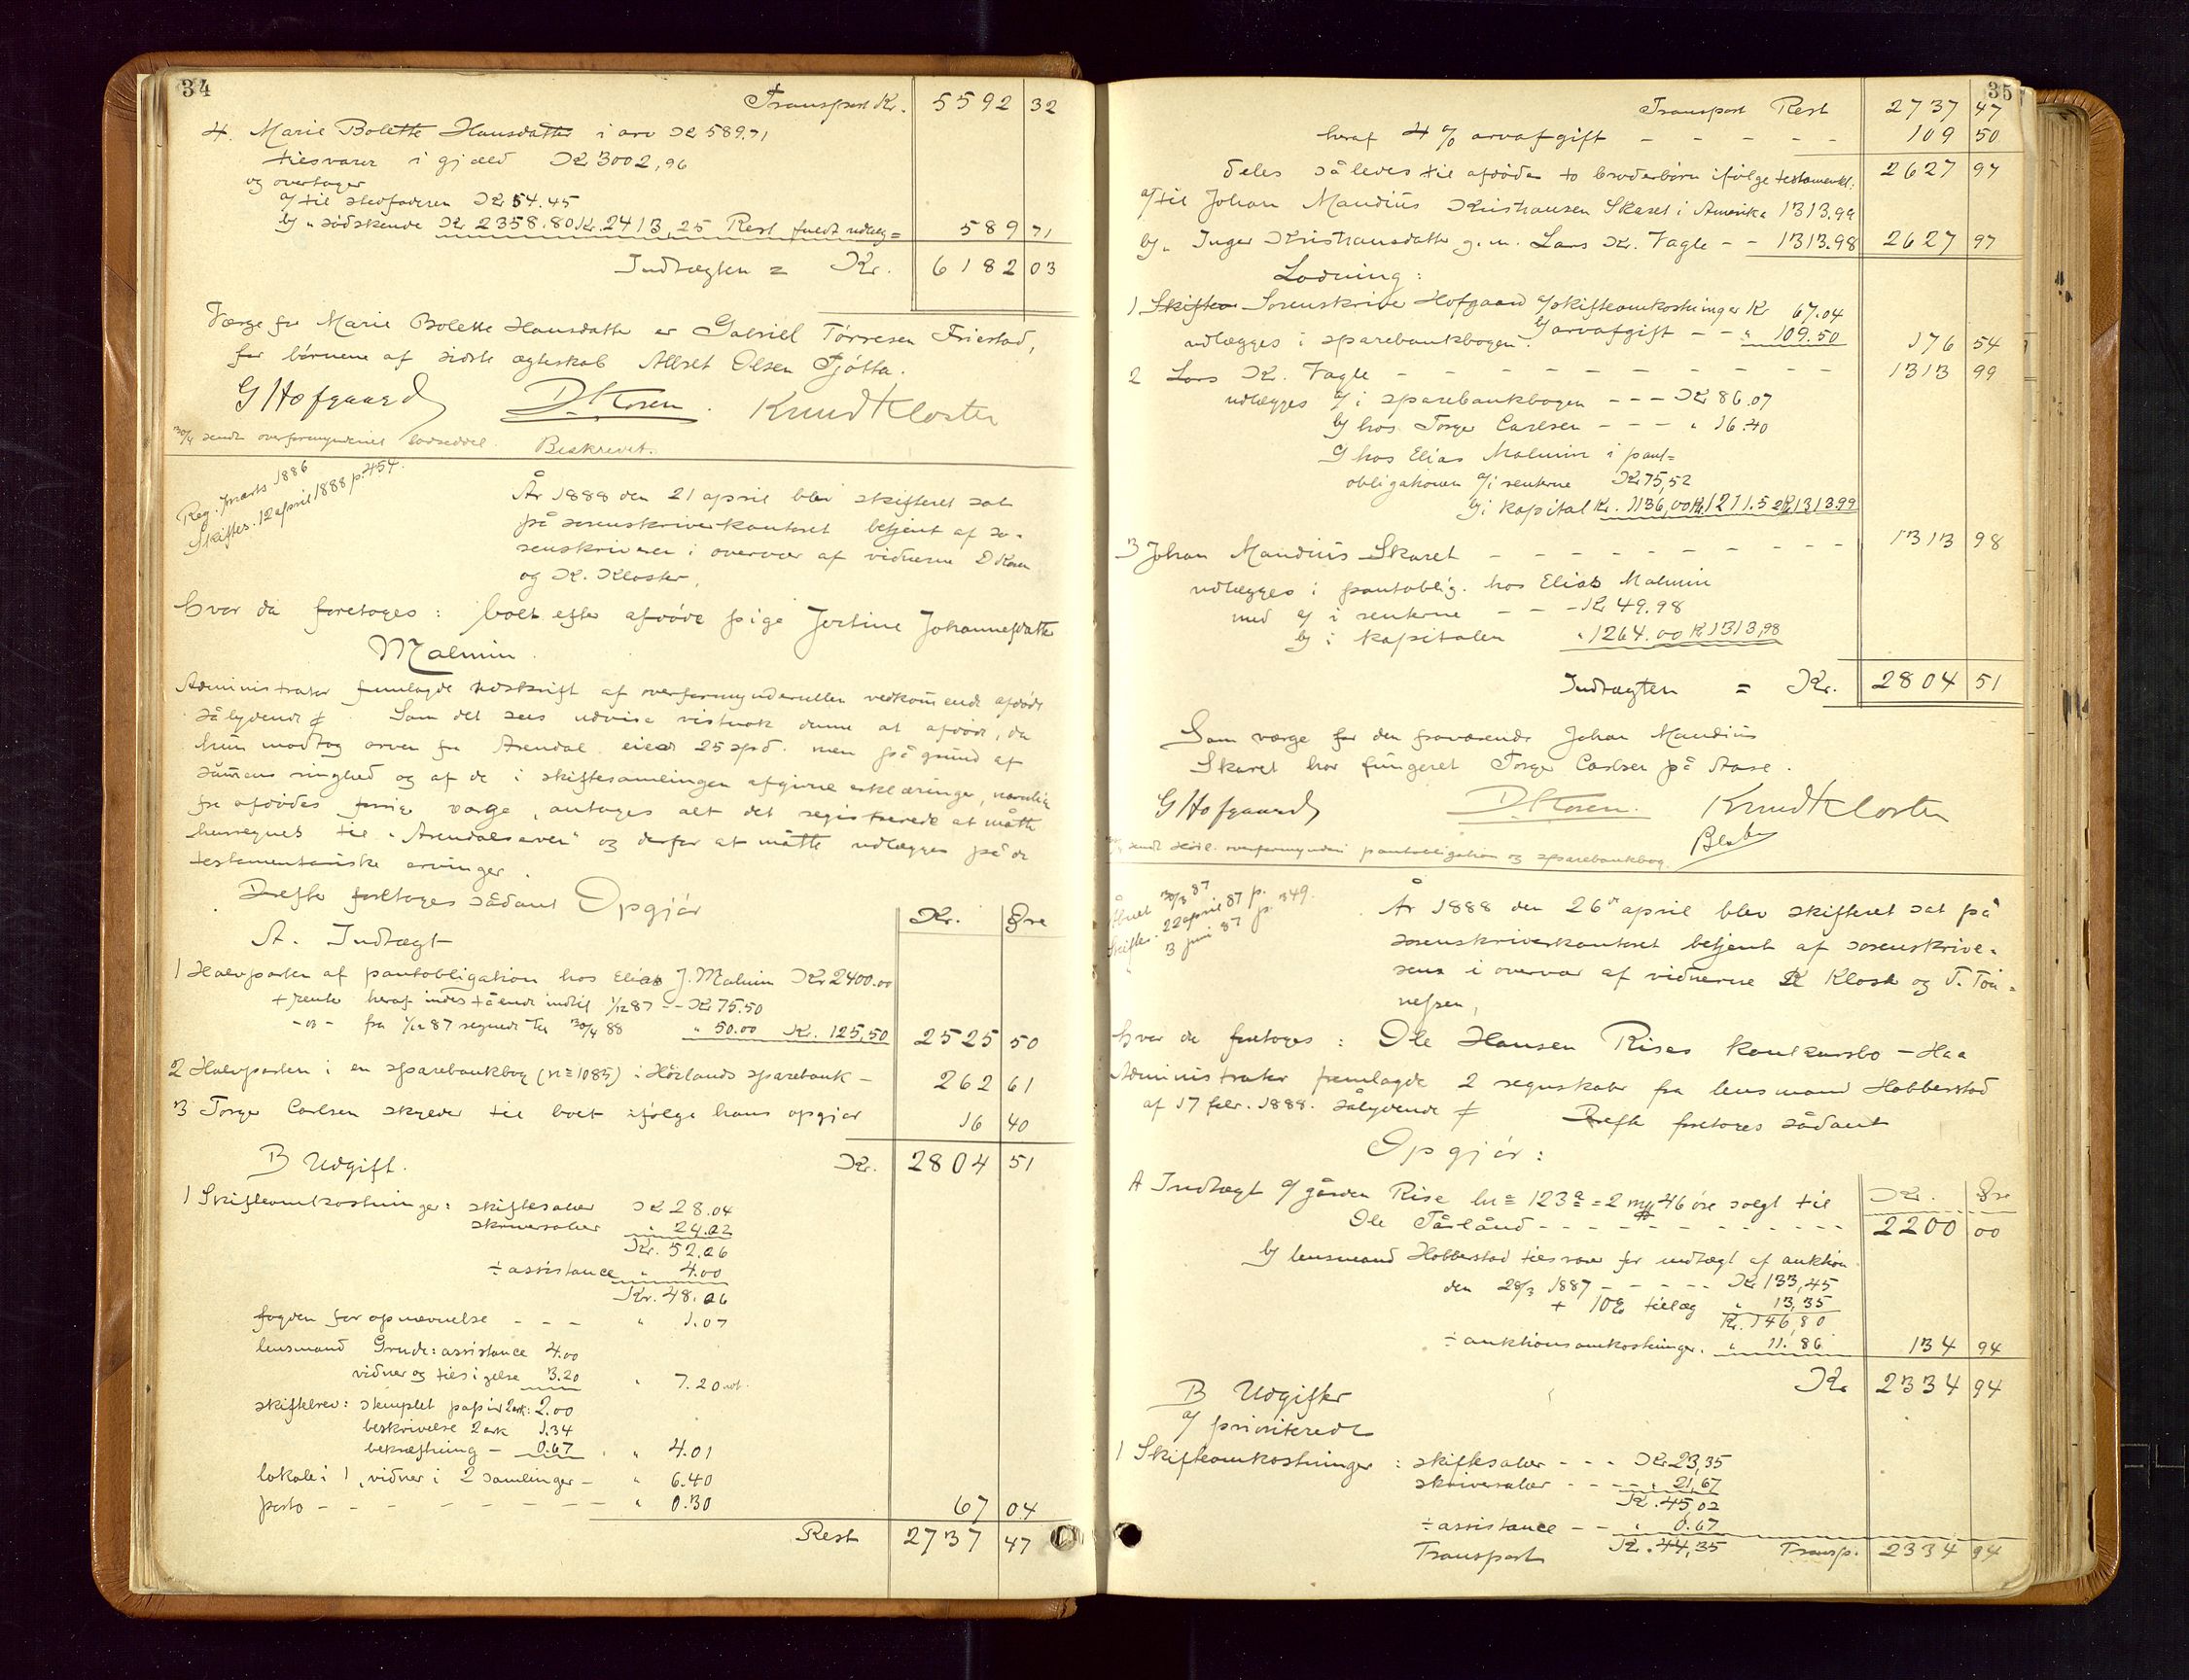 34
Transport Kr. 5592 32
4. Marie Bolette Hansdatter i arv Kr 589.71
tilsvarer i gjæld Kr 3002,96
og overtager
a/ til stedfaderen Kr 54.45
b/ " södskende Kr 2358.80 Kr. 2413,25 Rest fuldt udlæg = 589 71
Indtægten = Kr. 6182 03
Værge for Marie Bolette Hansdatter er Gabriel Törresen Friestad,
for börnene af sidste ægteskab Albret Olsen Tjötta.
G Hofgaard D. Kosen. Knud Kloster
30/4 sendt overformynderiet lodseddel. Beskrevet.
Reg. marts 1886
Skiftes. 12 april 1888 p. 454.
År 1888 den 21 april blev skifteret sat
på sorenskriverkontoret betjent af so-
renskriveren i overvær af vidnerne D Kosen
og K. Kloster,
hvor da foretoges: boet efter afdöde pige Jertine Johannesdatter
Malmin.
Administrator fremlagde udskrift af overformynderullen vedkommende afdöde
sålydende #. Som det sees udvise vistnok denne at afdöde, da
hun modtog arven fra Arendal eied 25 spd. men på grund af
summens ringhed og af de i skiftesamlingen afgivne erklæringer, navnlig
fra afdödes forrige værge, antages alt det registrerede at måtte
henregnes til "Arendalsarven" og derfor at måtte udlægges på de
testamentariske arvinger.
Derefter foretoges sådant Opgjör
Kr. Öre
A. Indtægt
1 Halvparten af pantobligation hos Elias J. Malmin Kr 2400.00
+ rente heraf indestående indtil 1/12 87 -- Kr 75.50
- os - fra 1/12 87 regnede til 30/4 88 " 50.00 Kr. 125,50 2525 50
2 Halvparten i en sparebankbog (n = 1085) i Höilands sparebank - 262 61
3 Torger Carlsen skylder til boet ifölge hans opgjör 16 40
B Udgift. Kr. 2804 51
1 Skifteomkostninger: skiftesalær Kr 28.04
skriversalær " 24.02
Kr. 52.06
÷ assistance " 4.00
Kr. 48.06
fogden for opnævnelse - - - " 1.07
lensmand Grude: assistance 4.00
vidner og tilsigelse 3.20 " 7.20
skiftebrev: stemplet papir 2 ark: 2.00
beskrivelse 2 ark 1.34
bekræftning - 0.67 " 4.01
lokale i 1, vidner i 2 samlinger - " 6.40
porto - - - - - - - - " 0.30 67 04
Rest 2737 47
35
Transport Rest 2737 47
heraf 4 % arveafgift - - - - - 109 50
deles således til afdödes to broderbörn ifölge testamentet: 2627 97
a/ til Johan Maudius Kristiansen Skaret i Amerika 1313.99
b/ " Inger Kristiansdatter g.m. Lars Kr. Vagle - - 1313.98 2627 97
Lodning:
1 Skiftea Sorenskriver Hofgaard a/ skifteomkostninger Kr 67.04
b/ arveafgift - - " 109.50
udlægges i sparebankbogen. 176 54
2 Lars Kr. Vagle - - - - - - - - - - 1313 99
udlægges a/ i sparebankbogen - - - Kr 86.07
b/ hos Torger Carlsen - - - " 16.40
c/ hos Elias Malmin i pant=
obligationen a/ i renterne Kr 75,52
b/ i kapital Kr. 1136,00 Kr. 1211.52 Kr 1313.99
3 Johan Maudius Skaret - - - - - - - - - 1313 98
udlægges i pantoblig. hos Elias Malmin
med a/ i renterne - - - Kr 49.98
b/ i kapitalen " 1264.00 Kr 1313,98
Indtægten = Kr. 2804 51
Som værge for den fraværende Johan Maudius
Skaret har fungeret Torger Carlsen på Aase.
G Hofgaard D. Kosen. Knud Kloster
sendt Höil. overformynderi pantobligation og sparebankbog.
Åbnet 30/3 87
Skiftes. 22 april 87 p.
3 juni 87 p. 349.
År 1888 den 26de april blev skifteret sat på
sorenskriverkontoret betjent af sorenskrive-
ren i overvær af vidnerne K Kloster og T. Tön-
nessen,
hvor da foretoges: Ole Hansen Rises konkursbo - Haa
Administrator fremlagde 2 regnskaber fra lensmand Hobberstad
af 17 febr. 1888. sålydende # Derefter foretoges sådant
Opgjör:
Kr. Öre
A Indtægt a/ gården Rise ln = 123a = 2 my 46 öre solgt til
Ole Tårlånd - - - - - - - - - - 2200 00
b/ lensmand Hobberstad tilsvar for indtægt af auktion
den 28/3 1887 - - - - - Kr 133,45
+ 10% tillæg " 13,35
Kr. 146,80
÷ auktionsomkostninger. " 11.86 134 94
Kr 2334 94
B Udgifter
a/ prioriterede
1 Skifteomkostninger: skiftesalær - - - Kr. 23,35
skriversalær - - - - " 21,67
Kr. 45,02
÷ assistance - - " 0.67
Transport Kr. 44,35 Transp. 2334 94